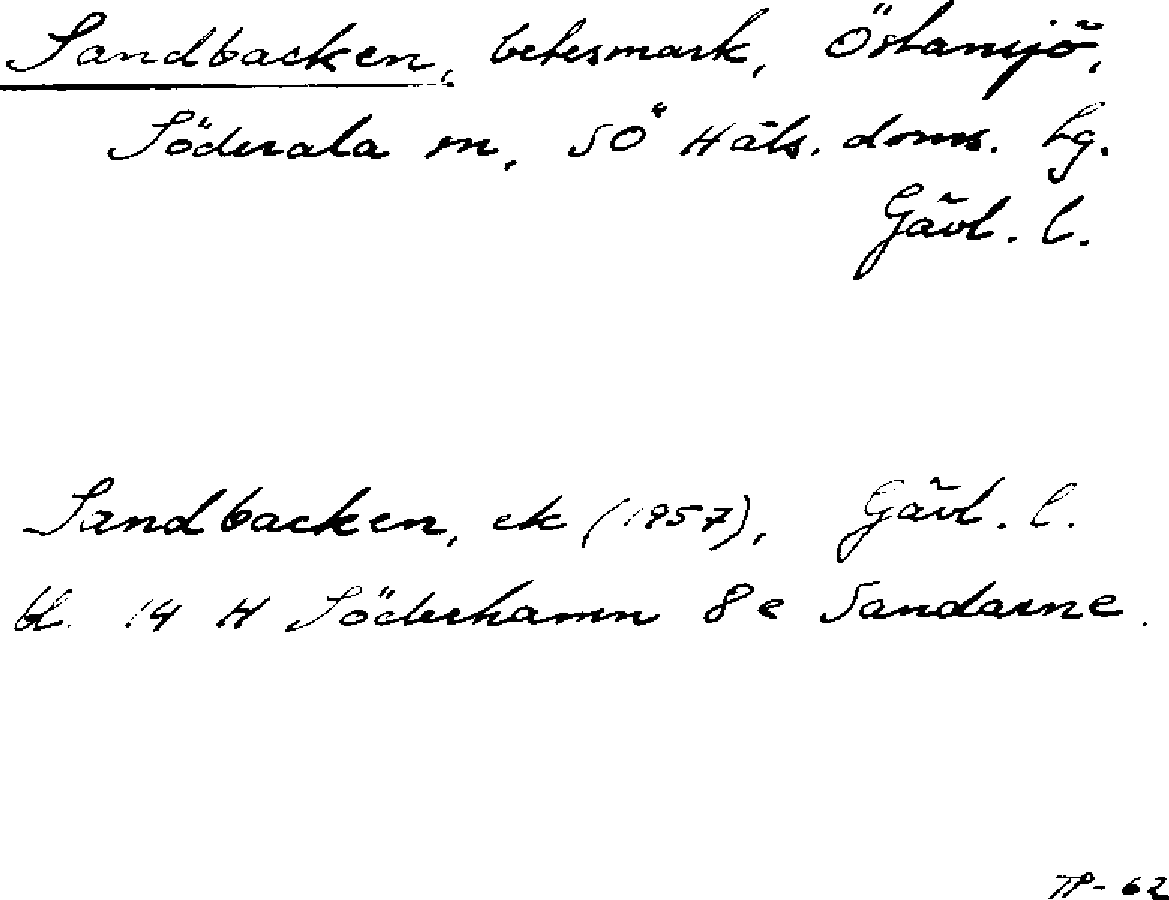 Sandbacken, betesmark, Östansjö,
Söderala sn, SÖ Häls. doms. tg.
Gävl. l.
Sandbacken, ek (1957), Gävl. l.
bl. 14 H Söderhamn 8e Sandarne.
TP-62